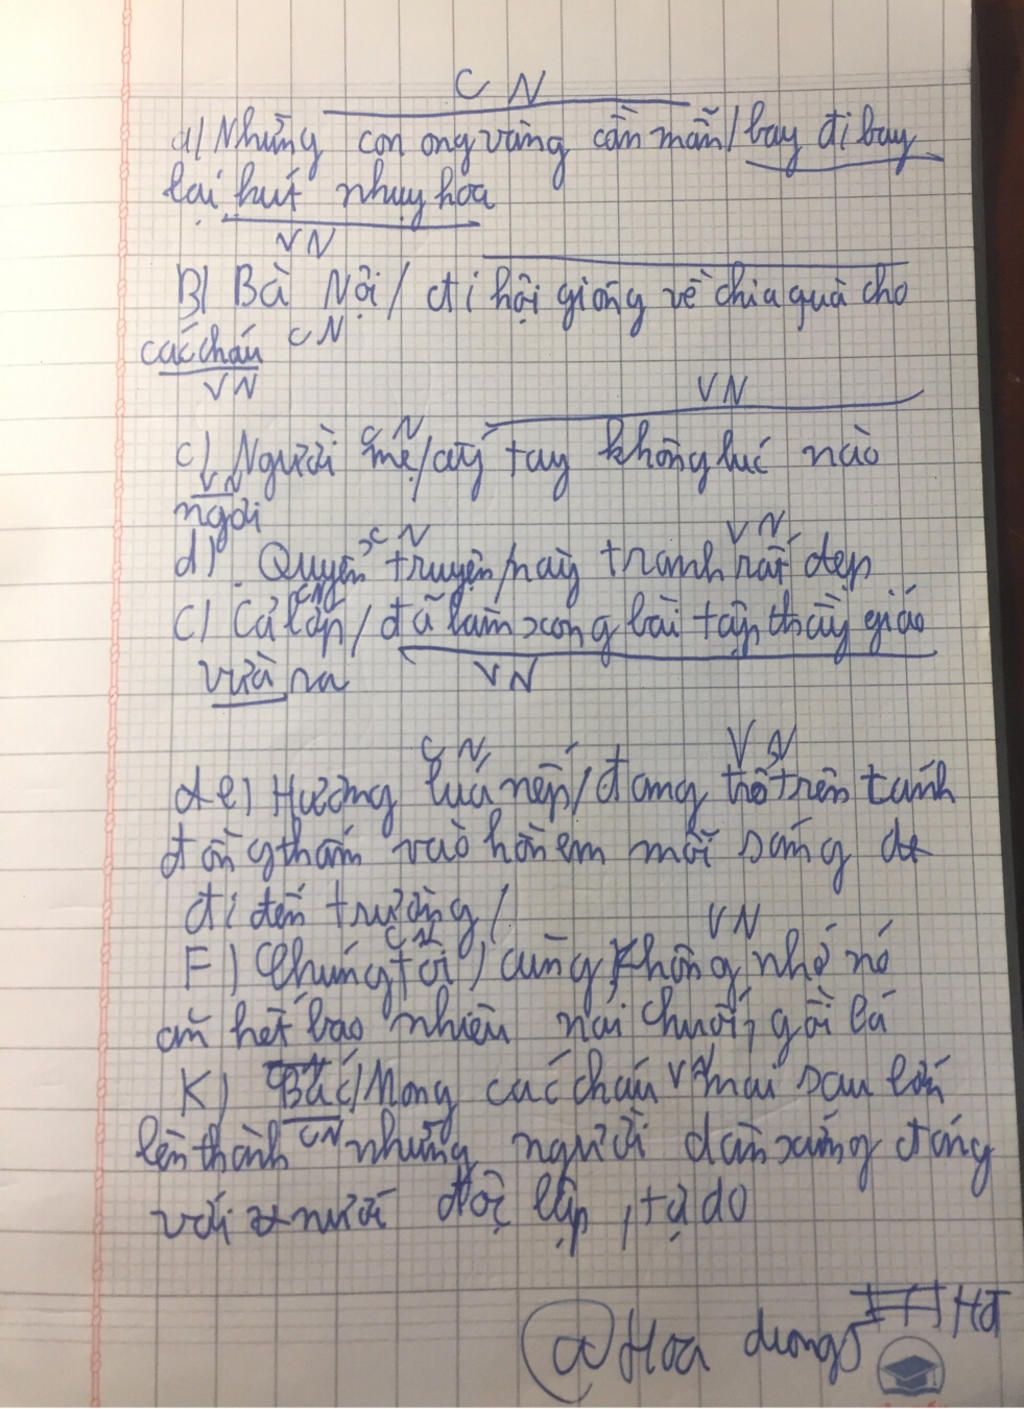 C N
a/ Những con ong vàng cần mẫn/ bay đi bay
lại hút nhụy hoa
VN
B/ Bà Nội / đi hội gióng về chia quà cho
các cháu CN
VN
VN
CN
c) Người mẹ/ấy tay không lúc nào
VN
ngơi
CN VN
d) Quyển truyện/này tranh rất đẹp
CN
C) Cả lớp/ đã làm xong bài tập thầy giáo
vừa ra VN
CN VN
de) Hương lúa nếp/ đang trổ trên cánh
đồng thấm vào hồn em mỗi sáng
đi đến trường/
CN VN
F) Chúng tôi / cũng không nhớ nó
ăn hết bao nhiêu nải chuối, gồi lá
K) Bác/Mong các cháu VN mai sau lớn
lên thành CN những người dân xứng đáng
với nước độc lập, tự do
@ Hoa duong5 HĐ